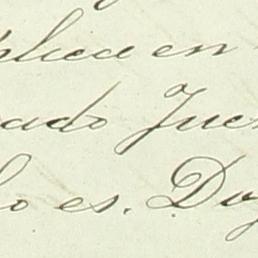 plica en
ado Juez
lo es. Doy